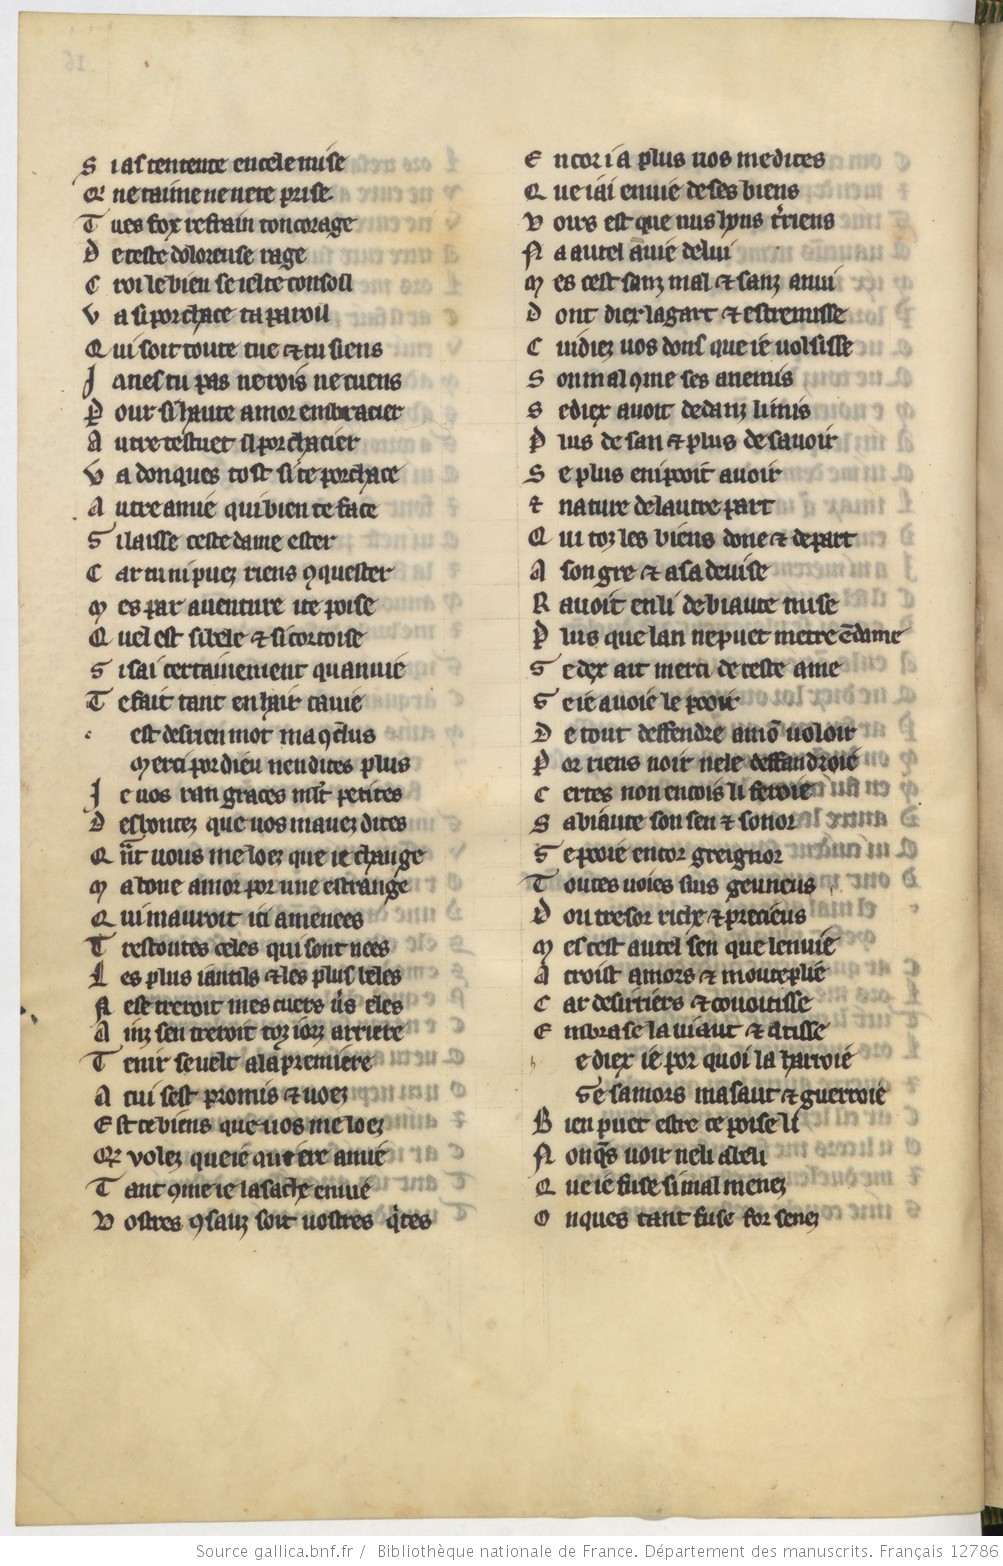 S i as tentente en cele mise
Qr ne taime ne ne te prise
T u es fox refrain ton corage
D e ceste dolereuse rage
C roi le bien je ielte consoil
V a si porchace ta paroil
Q ui soit toute tue et tu siens
J a nes tu pas ne rois ne cuens
P our si haute amor embracier
A utre testuet il porchacier
V a donques tost si te porchace
A utre amie qui bien te face
S i laisse ceste dame ester
C ar tu ni puez riens ꝯquester
M es par auenture ite poise
Q uel est si bele et si cortoise
S i sai certainement quamie
T e fait tant en hair ta uie
est des rien mot ma ꝯclus
Merci por dieu nen dites plus
J e uos ran graces mlt petites
D es hontez que uos mauez dites
Q nt uous me loez que ie change
M a bone amor por une estrange
Q ui mauroit ici amenees
T restoutes celes qui sont nees
L es plus iantils et les plus beles
N est treroit mes cuers uers eles
A inz sen treroit toz iorz arriere
T enir se uelt a la premiere
A cui sest promis et uoez
E st ce biens que uos me loez
Qr volez que ie quiere amie
T ant ꝯme ie la sache en uie
V ostres ꝯsauz soit uostres qites
E ncor i a plus uos me dites
Q ue iai enuie de ses biens
V oirs est que nus hons terriens
N a autel amie de lui
M es cest sanz mal et sanz anui
D ont diex la gart et estremisse
C uidiez uos dons que ie uolsisse
S on mal ꝯme ses anemis
S e diex auoit dedanz li mis
P lus de san et plus de sauoir
S e plus en i pooit auoir
Et nature de lautre part
Q ui toz les biens done et depart
A son gre et a sa deuise
R auoit en li de biaute mise
P lus que lan ne puet metre en dame
S e dex ait merci de ceste ame
S e ie auoie le pooir
D e tout deffendre a mon uoloir
P or riens uoir nele deffandroie
C ertez non encois li feroie
S a biaute son sen et sonor
S e pooie encor greignor
T outes uoies suis geuneus
D ou tresor riche et precieus
M es cest autel sen que lenuie
A croist amors et mouteplie
C ar desirriers et couoitisse
E nbrase la uiaut et atisse
e diex ie por quoi la harroie
Se samors masaut et guerroie
B ien puet estre ce poise li
N onqs uoir neli abeli
Q ue ie fuse si mal menez
O nques tant fuse for senez
Source gallica.bnf.fr / Bibliothèque nationale de France. Département des manuscrits. Français 12786